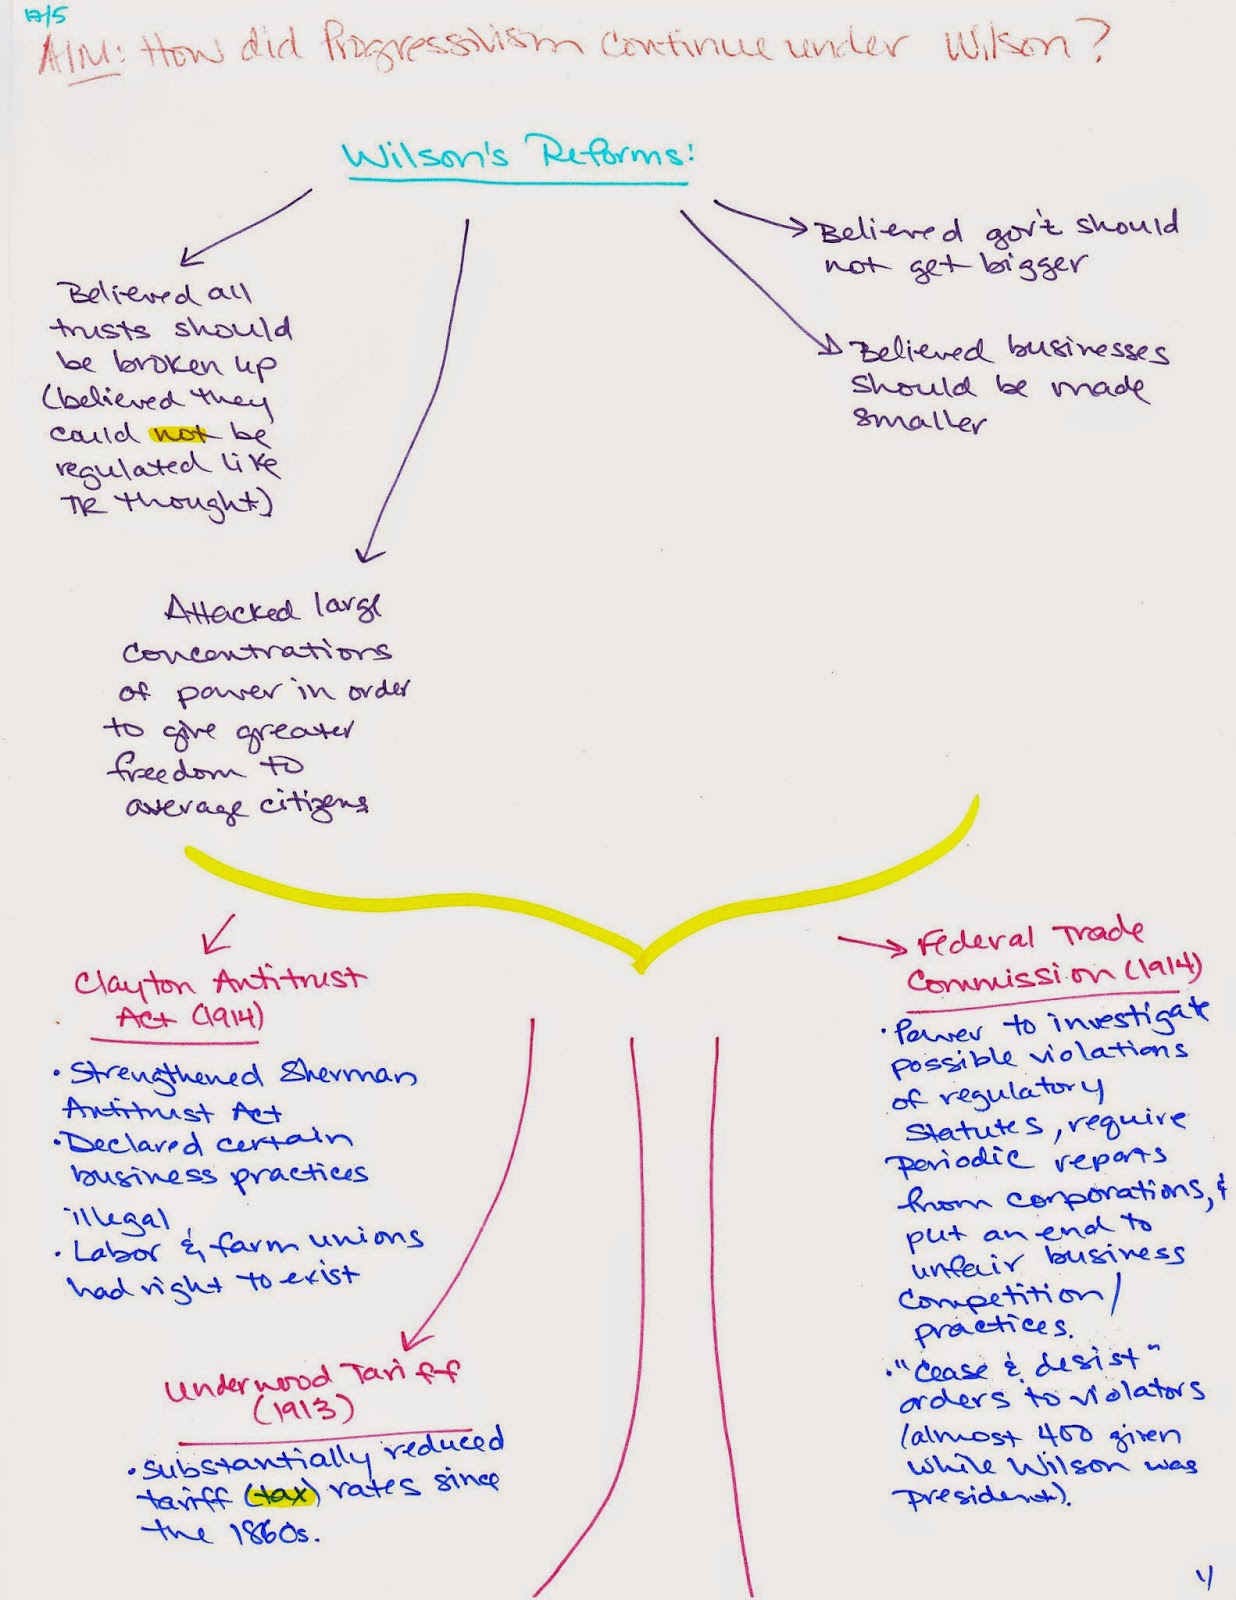 12/5
AIM: How did Progressivism continue under Wilson?
Wilson's Reforms:
Believed all
trusts should
be broken up
(believed they
could not be
regulated like
TR thought)
Attacked large
concentrations
of power in order
to give greater
freedom to
average citizens
Believed gov't should
not get bigger
Believed businesses
should be made
smaller
Clayton Antitrust
Act (1914)
• Strengthened Sherman
Antitrust Act
• Declared certain
business practices
illegal
• Labor & farm unions
had right to exist
Underwood Tariff
(1913)
• Substantially reduced
tariff (tax) rates since
the 1860s.
Federal Trade
Commission (1914)
• Power to investigate
possible violations
of regulatory
statutes, require
periodic reports
from corporations, &
put an end to
unfair business
competition/
practices.
• "Cease & desist"
orders to violators
(almost 400 given
while Wilson was
president).